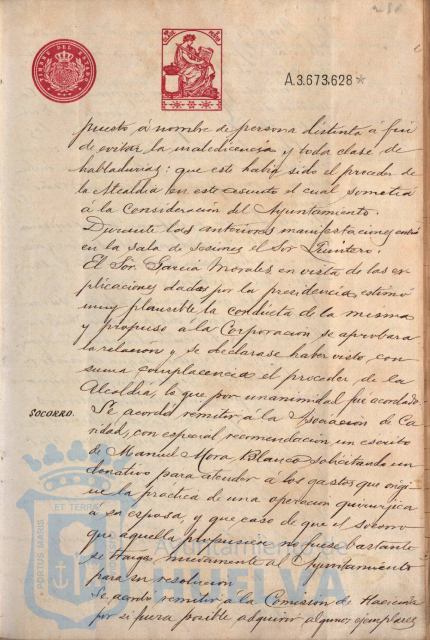 A.3.673.628*
puesto á nombre de persona distinta á fin
de evitar la maledicencia y toda clase de
habladurias: que este habia sido el proceder de
la Alcaldia en este asunto el cual sometia
á la Consideración del Ayuntamiento.
Durante las anteriores manifestaciones entró
en la sala de sesiones el Sor Quintero.
El Sor. Garcia Morales en vista de las ex
plicaciones dadas por la presidencia, estimó
muy plausible la conducta de la misma
y propuso á la Corporacion se aprobara
la relación y se declarase haber visto con
suma complacencia el proceder de la
Alcaldia, lo que por unanimidad fue acordado.
SOCORRO.
Se acordó remitir á la Asociacion de Ca
ridad, con especial recomendacion un escrito
de Manuel Mora Blanco solicitando un
donativo para atender á los gastos que origi
ne la práctica de una operacion quirurgica
á su esposa, y que caso de que el socorro
que aquella propusiera no fuese bastante
se traiga nuevamente al Ayuntamiento
para su resolucion
Se acordó remitir á la Comisión de Hacienda
por si fuera posible adquirir algunos ejemplares
TIMBRE DEL ESTADO
PORTUS MARIS ET TERRAE
Ayuntamiento de
HUELVA